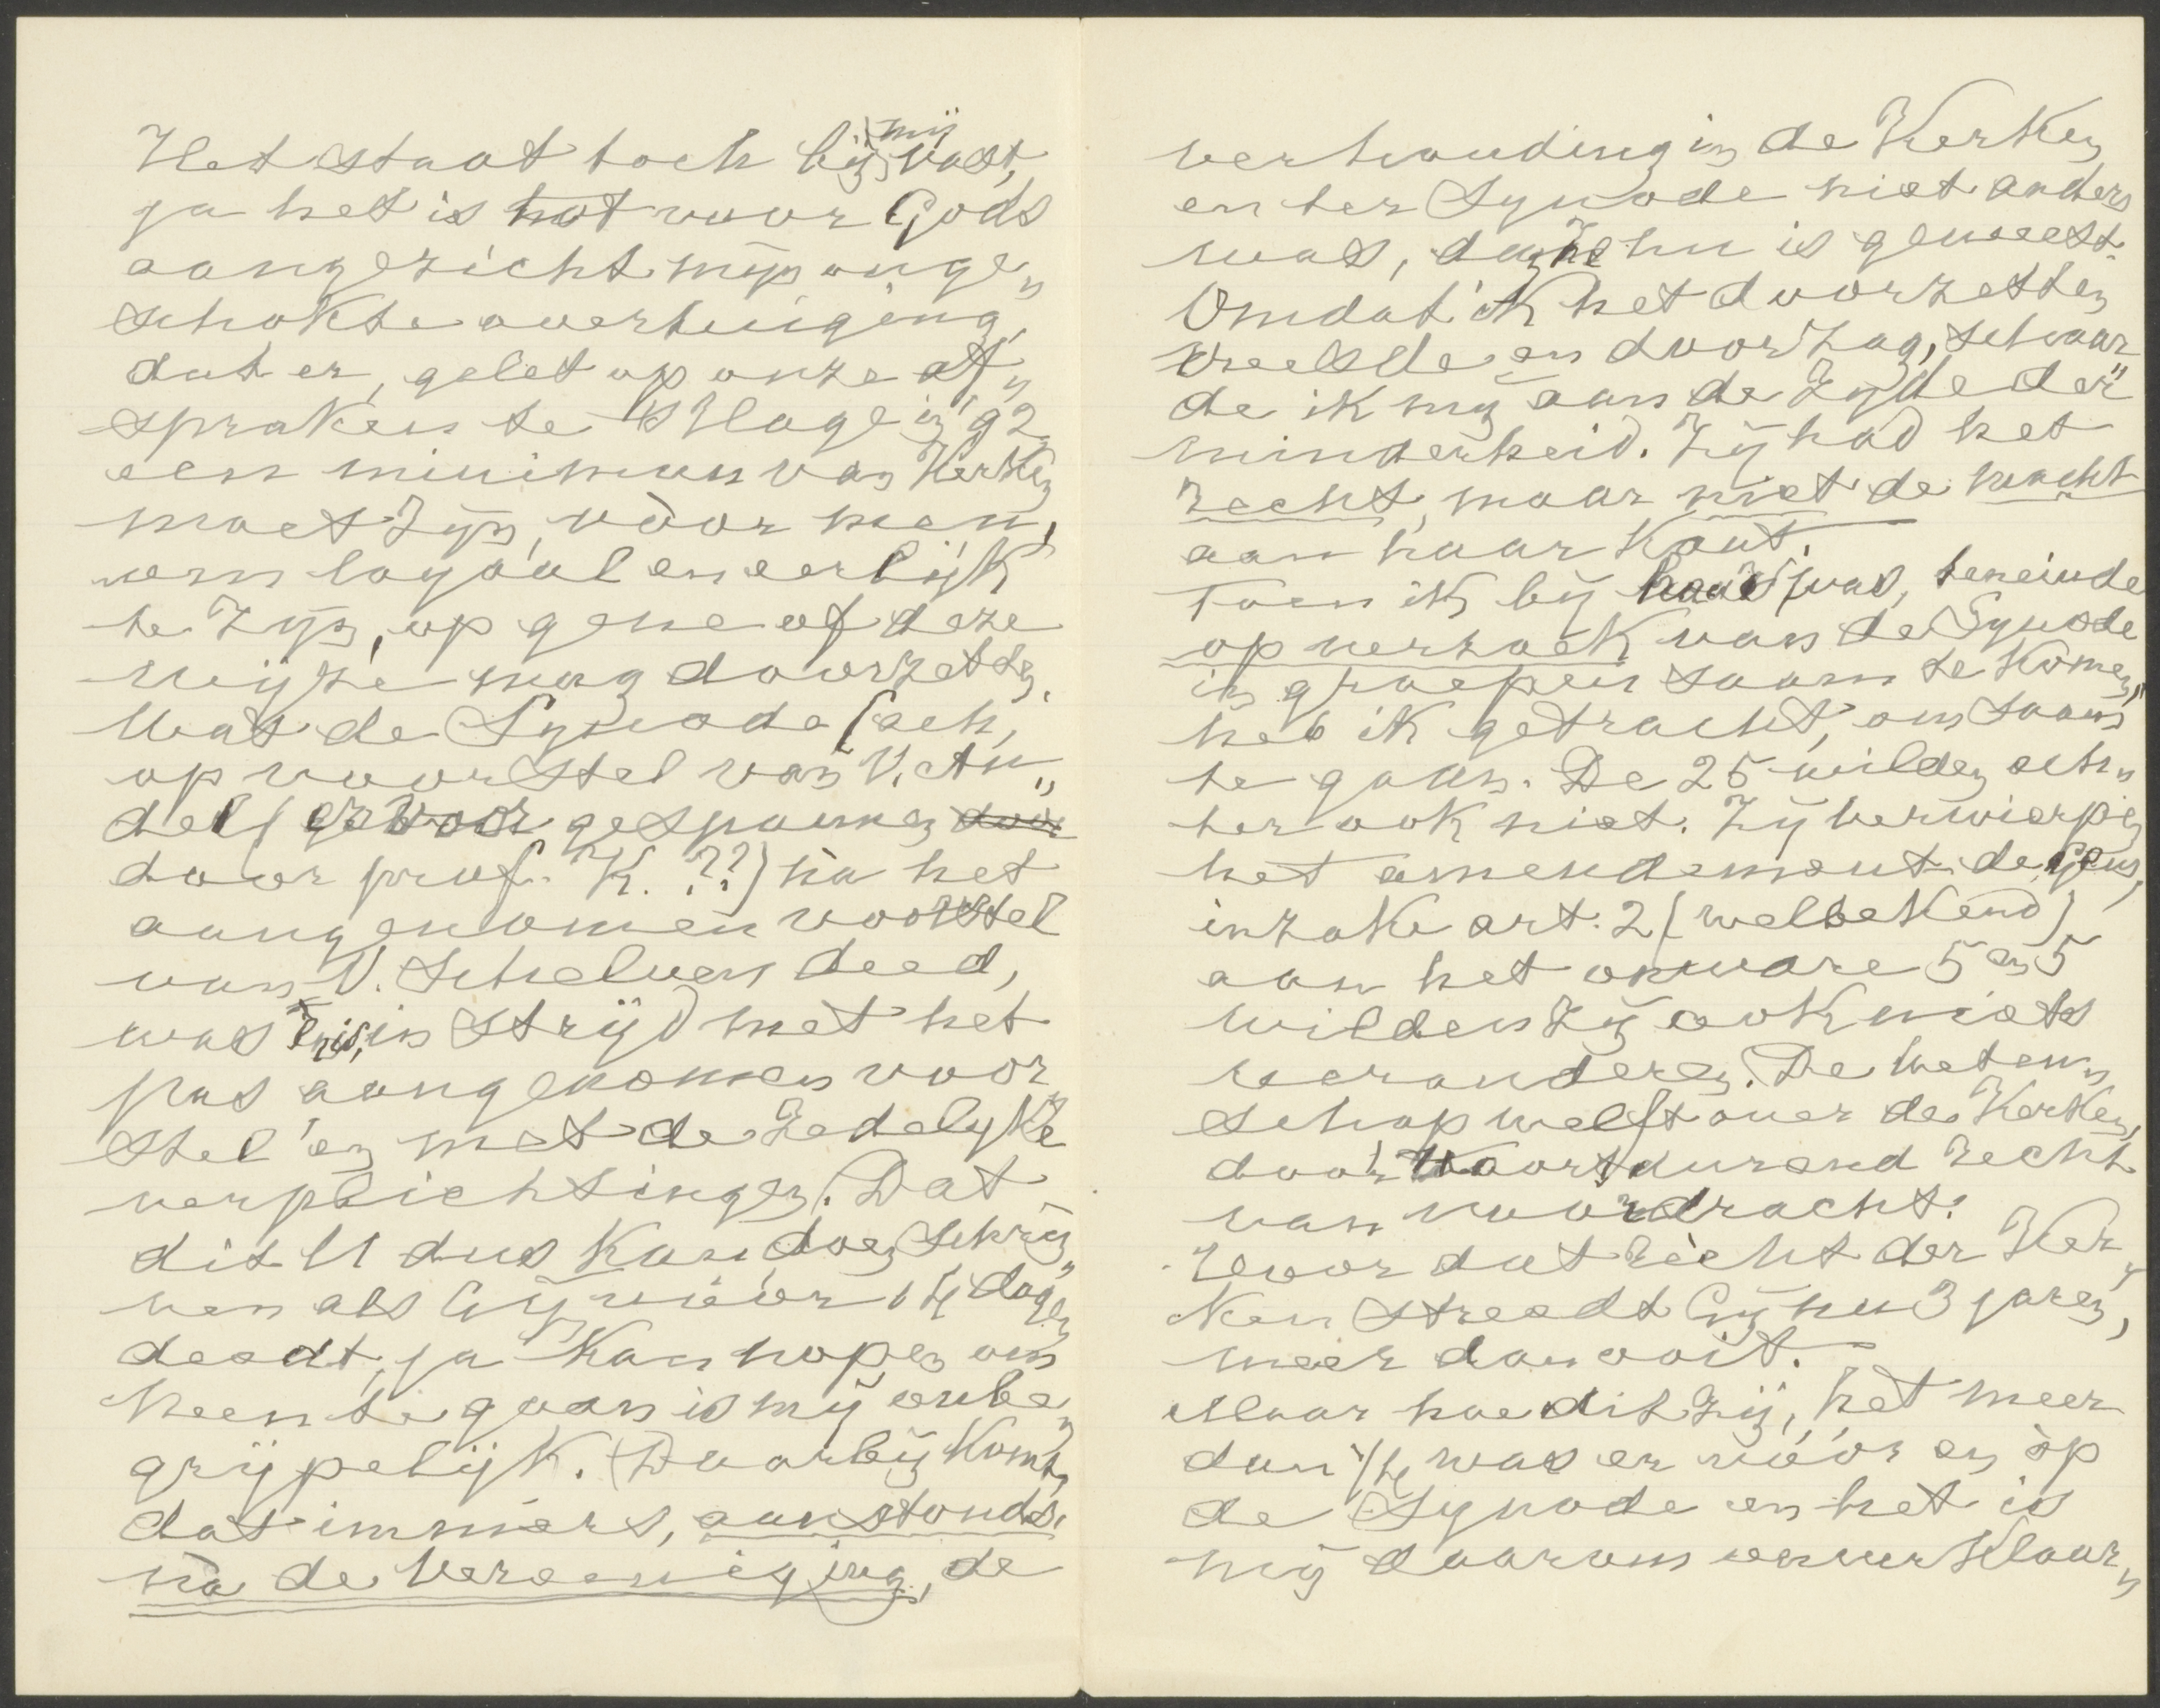 Het staat toch bij mij vast,
ja het is tot voor Gods
aangezicht mijn onge„
schokte overtuiging,
dat er, gelet op onze af„
spraken te 's Hage in '92
een minimum van Kerken
moet zijn, vóór men,
om loyaal en eerlijk
te zijn, op gene of deze
wijze mag doorzetten.
Wat de Synode (ach,
op voorstel van V. An„
del (er voor gespannen
door prof. K. ??) na het
aangenomen voorstel
van V. Schelven deed,
was en is, in strijd met het
pas aangenomen voor„
stel en met de zedelyke
verplichtingen. Dat
dit U dus kan doen schrij„
ven als Gij vóór 14 dagen
deedt, ja kan nopen om
heen te gaan is mij onbe„
grijpelijk. Daarbij komt,
dat immers, aanstonds
na de Vereeniging, de
verhouding in de Kerken
en ter Synode niet anders
was, dan ze nu is geweest.
Omdat ik het doorzetten
vreesde en doorzag, schaar„
de ik mij aan de zijde der
minderheid. Zij had het
recht, maar niet de macht
aan haar kant.
Toen ik bij haar was, teneinde
op verzoek van de Synode
in groepen saam te komen,
heb ik getracht, om saam
te gaan. De 25 wilden ech„
ter ook niet. Zij verwierpen
het amendement de Geus,
inzake art. 2 (welbekend)
aan het onware 5 en 5
wilden zij ook niets
veranderen. De Weten„
schap welft over de Kerken,
door voortdurend recht
van voordracht.
Voor dat recht der Ker„
ken streedt Gij nu 3 jaren,
meer dan ooit.
Maar hoe dit zij, het meer
dan 1/4 was er vóór en op
de Synode en het is
mij daarom onverklaar„